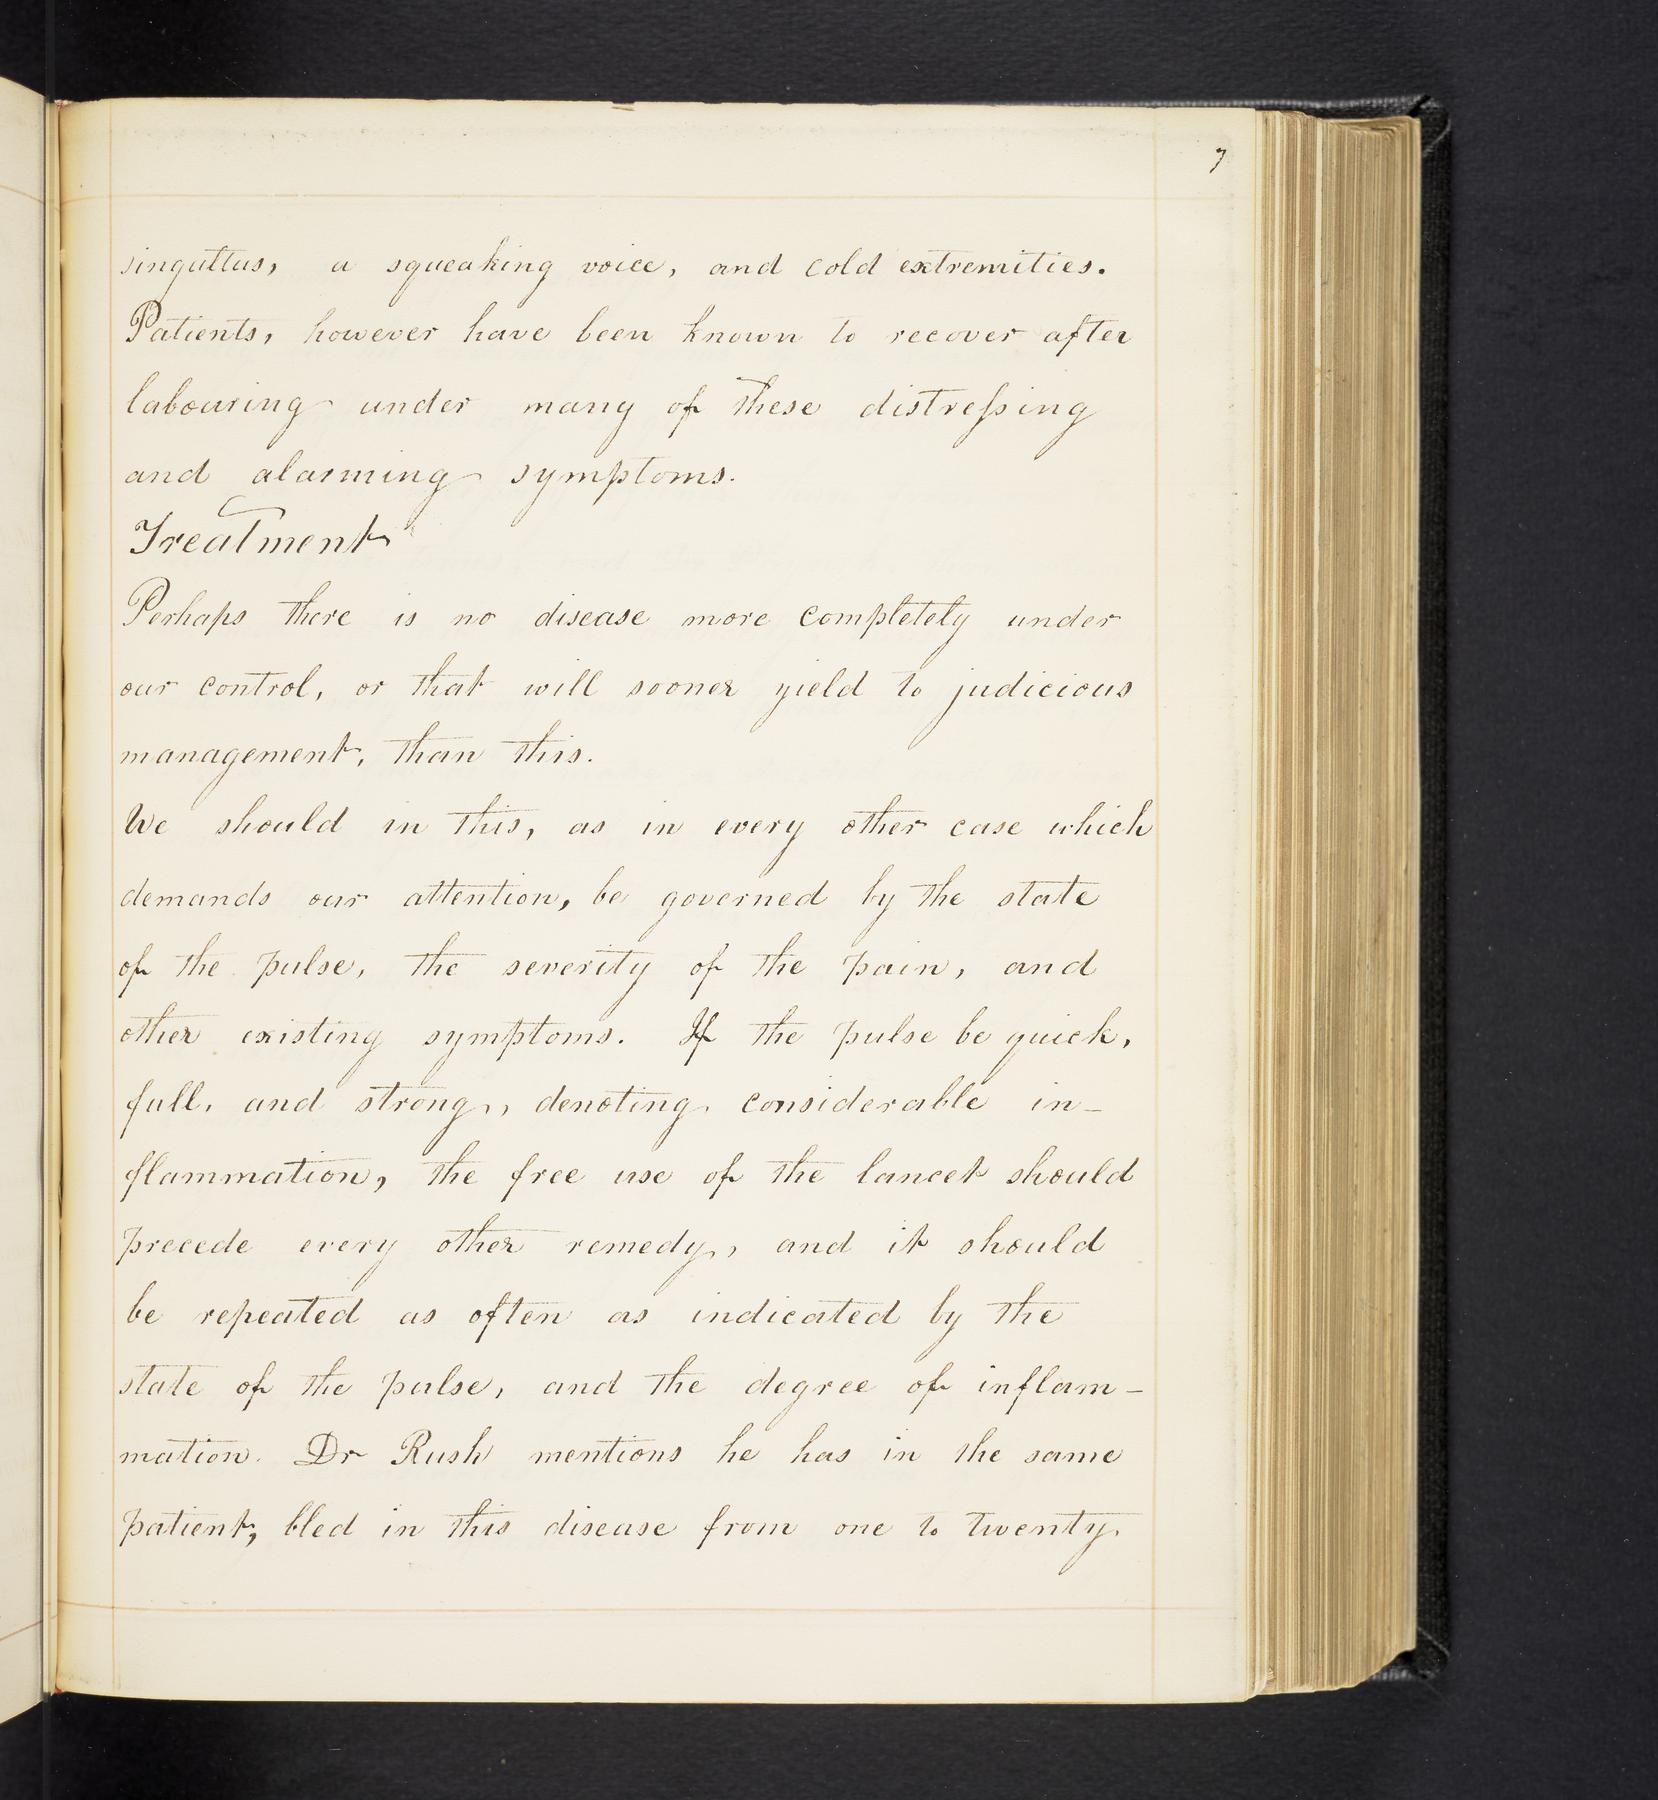 7
singultus, a squeaking voice, and cold extremities.
Patients, however have been known to recover after
labouring under many of these distreſsing
and alarming symptoms.
Treatment
Perhaps there is no disease more completely under
our control, or that will sooner yield to judicious
management, than this.
We should in this, as in every other case which
demands our attention, be governed by the state
of the pulse, the severity of the pain, and
other existing symptoms. If the pulse be quick,
full, and strong, denoting considerable in-
flammation, the free use of the lancet should
precede every other remedy, and it should
be repeated as often as indicated by the
state of the pulse, and the degree of inflam-
mation. Dr Rush mentions he has in the same
patient, bled in this disease from one to twenty.